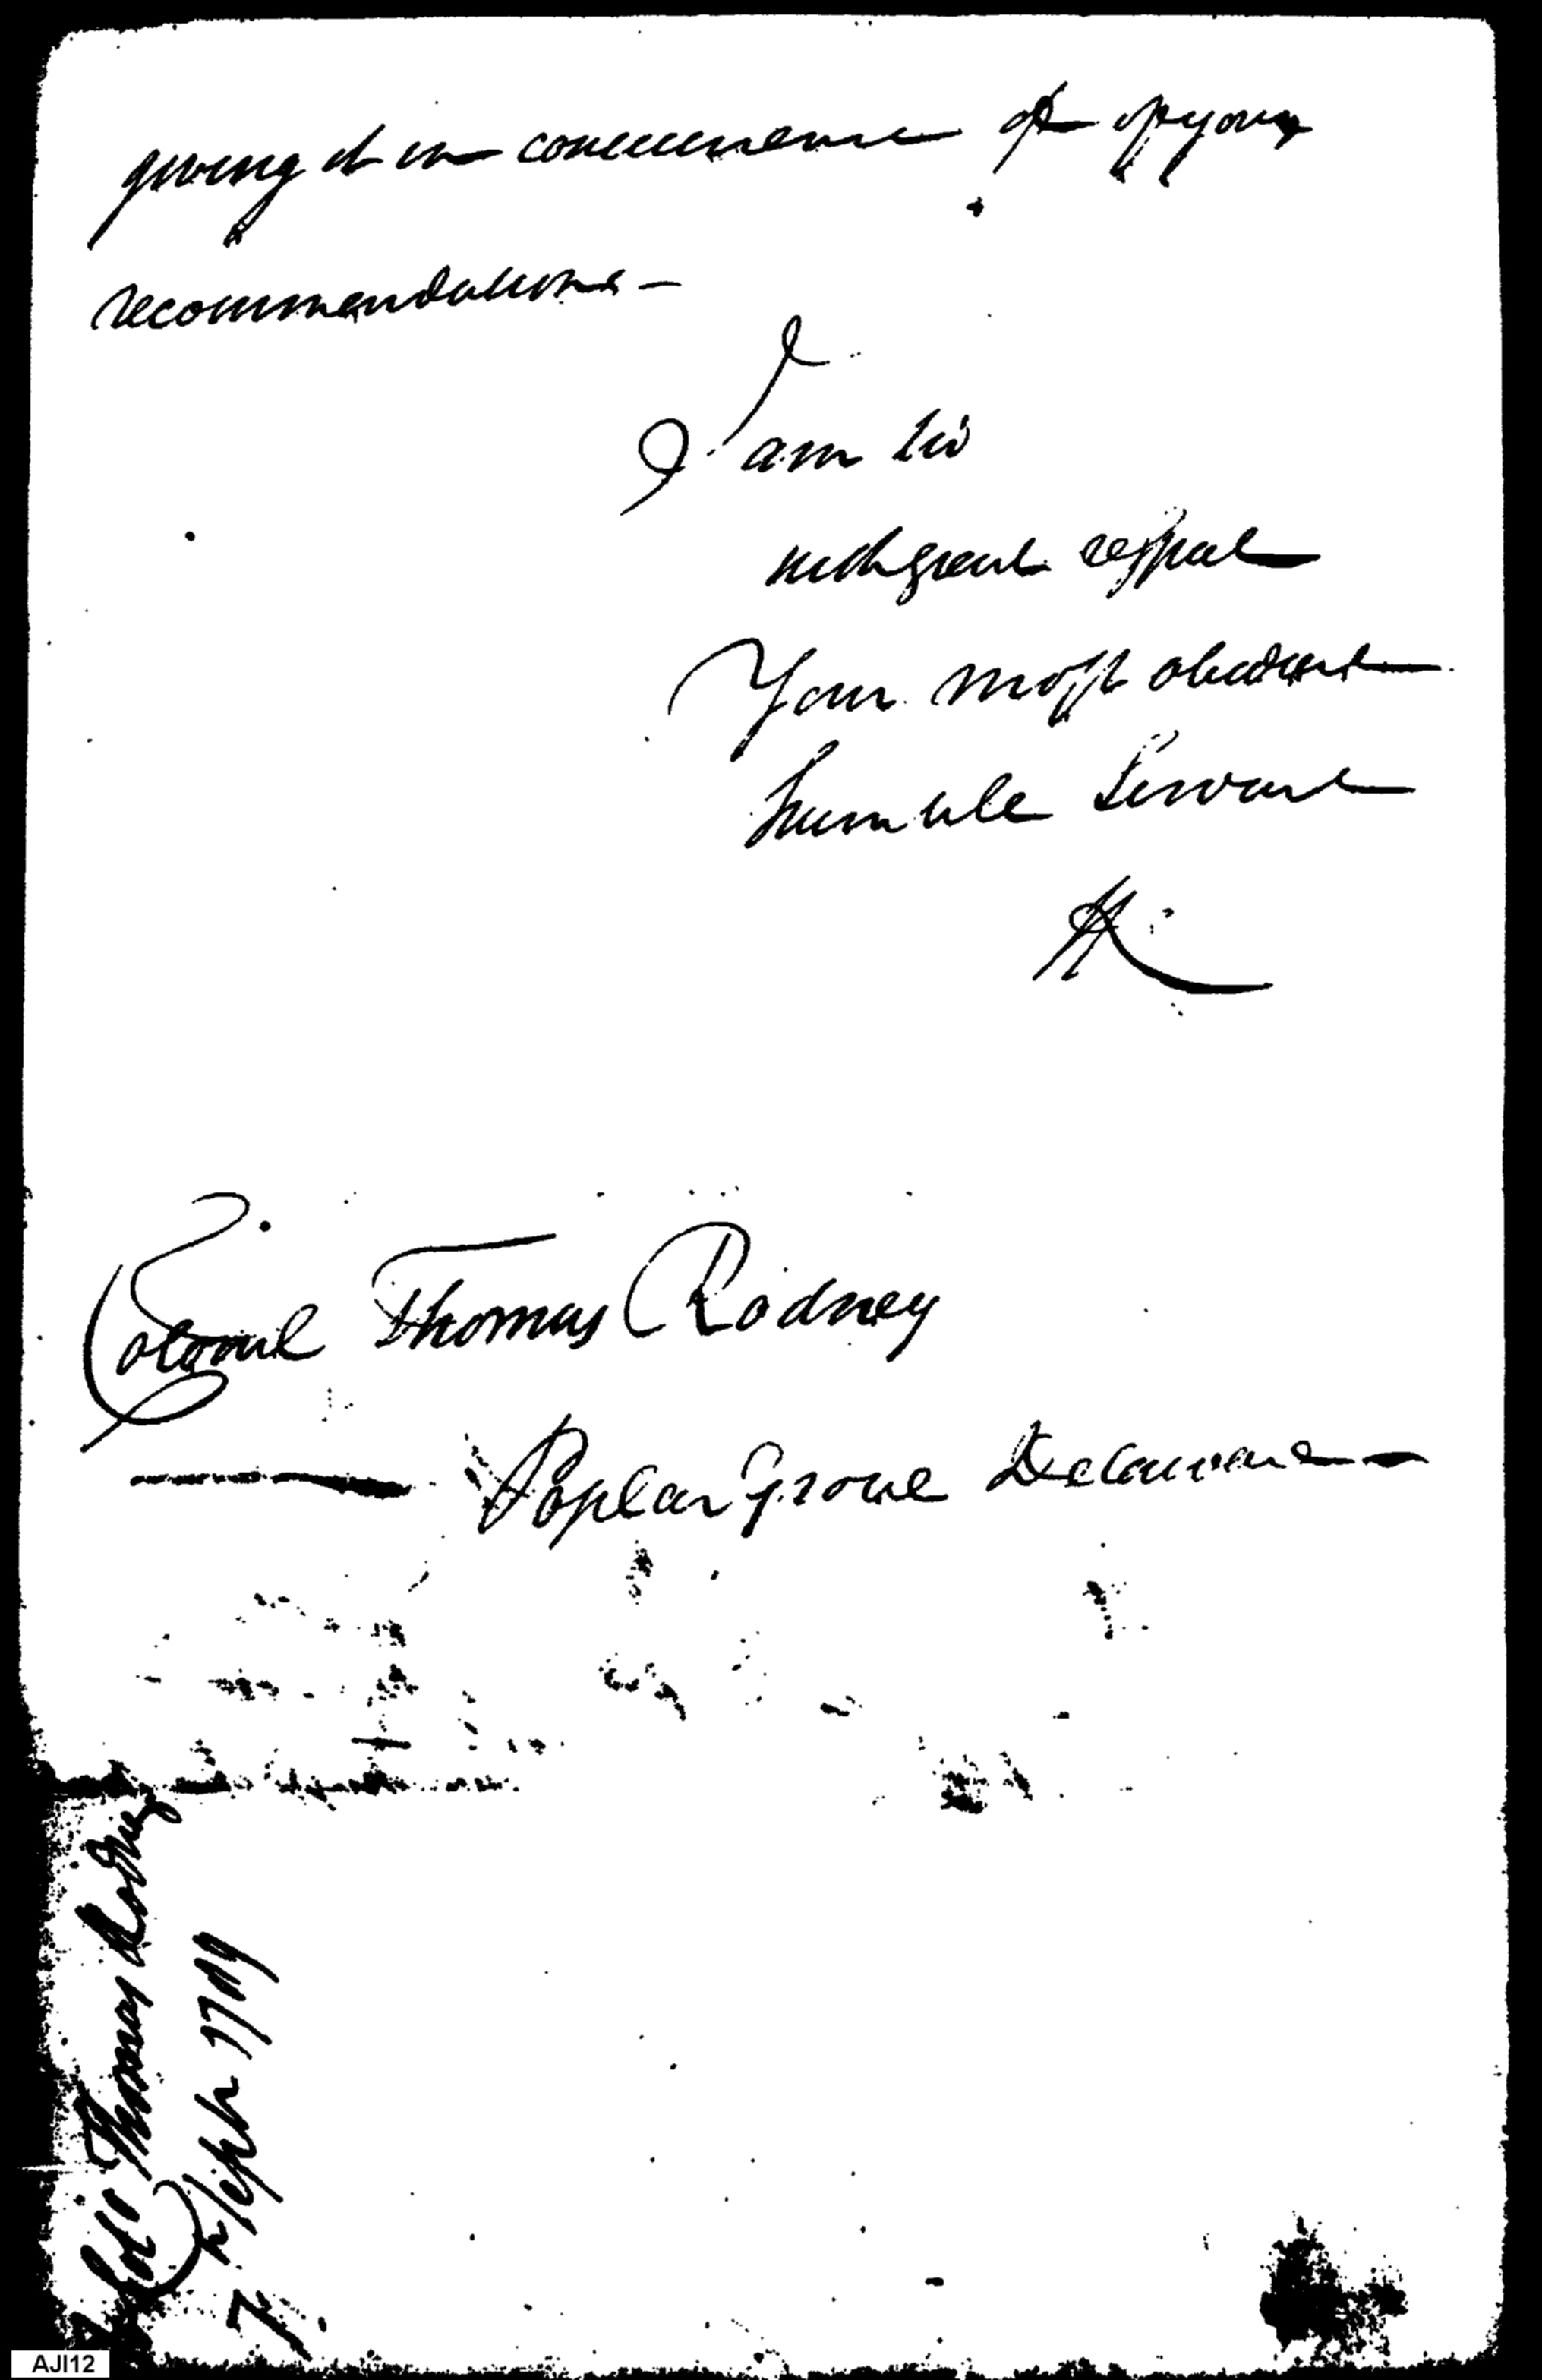 giving it in concurrence of of your
recommendations —
I am Sir
with great respect
Your most obedient
humble Servant
HK
Colonel Thomas Rodney
Poplar Grove Delaware —
Colo. Thomas Rodney
7 Septr 1789
AJI12